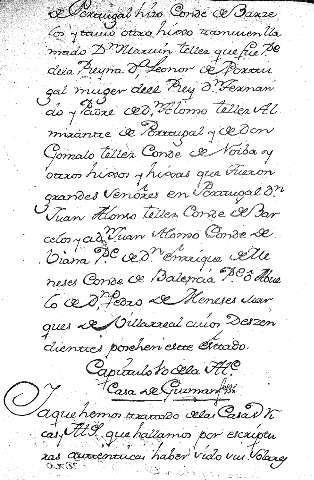 de Portugal hizo Conde de Barze
los y tuuo otro hijo tambien lla
mado Dn Martin tellez que fue Pe
dela Reyna Da Leonor de Portu
gal muger deel Rey Dn Fernan
do y Padre de Dn Alonso tellez Al
mirante de Portugal y de Don
Gonzalo tellez Conde de Noiba y
otros hijos y hijas que fueron
grandes Señores en Portugal Dn
Juan Alonso tellez Conde de Bar
celos y a Dn Juan Alonso Conde de
Viana Pe de Dn Enrrique de Me
neses Conde de Balencia Pe o Abue
lo de Dn Pedro de Meneses Mar
ques de Villarreal cuios Deszen
dientes posehen este estado.
Capitulo to de la Al
Casa de Guzman
Ja que hemos tratado de las Casas
cas, y que hallamos por escriptu
ras autenticas haber vido sus Solares